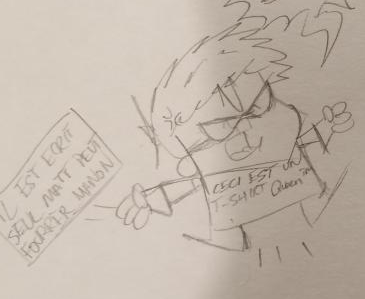 IL EST ECRIT
SEUL MATT PEUT
FOURRER MANON
N
CECI EST UN
T-SHIRT Queen™